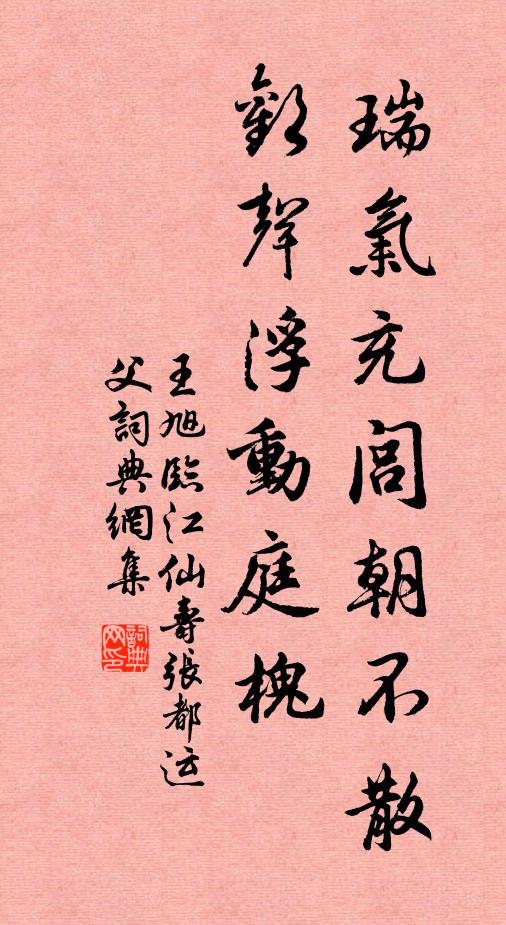 瑞氣充閭朝不散
歡聲浮動庭槐
王旭臨江仙壽張都运
父詞典網集
詞典网印